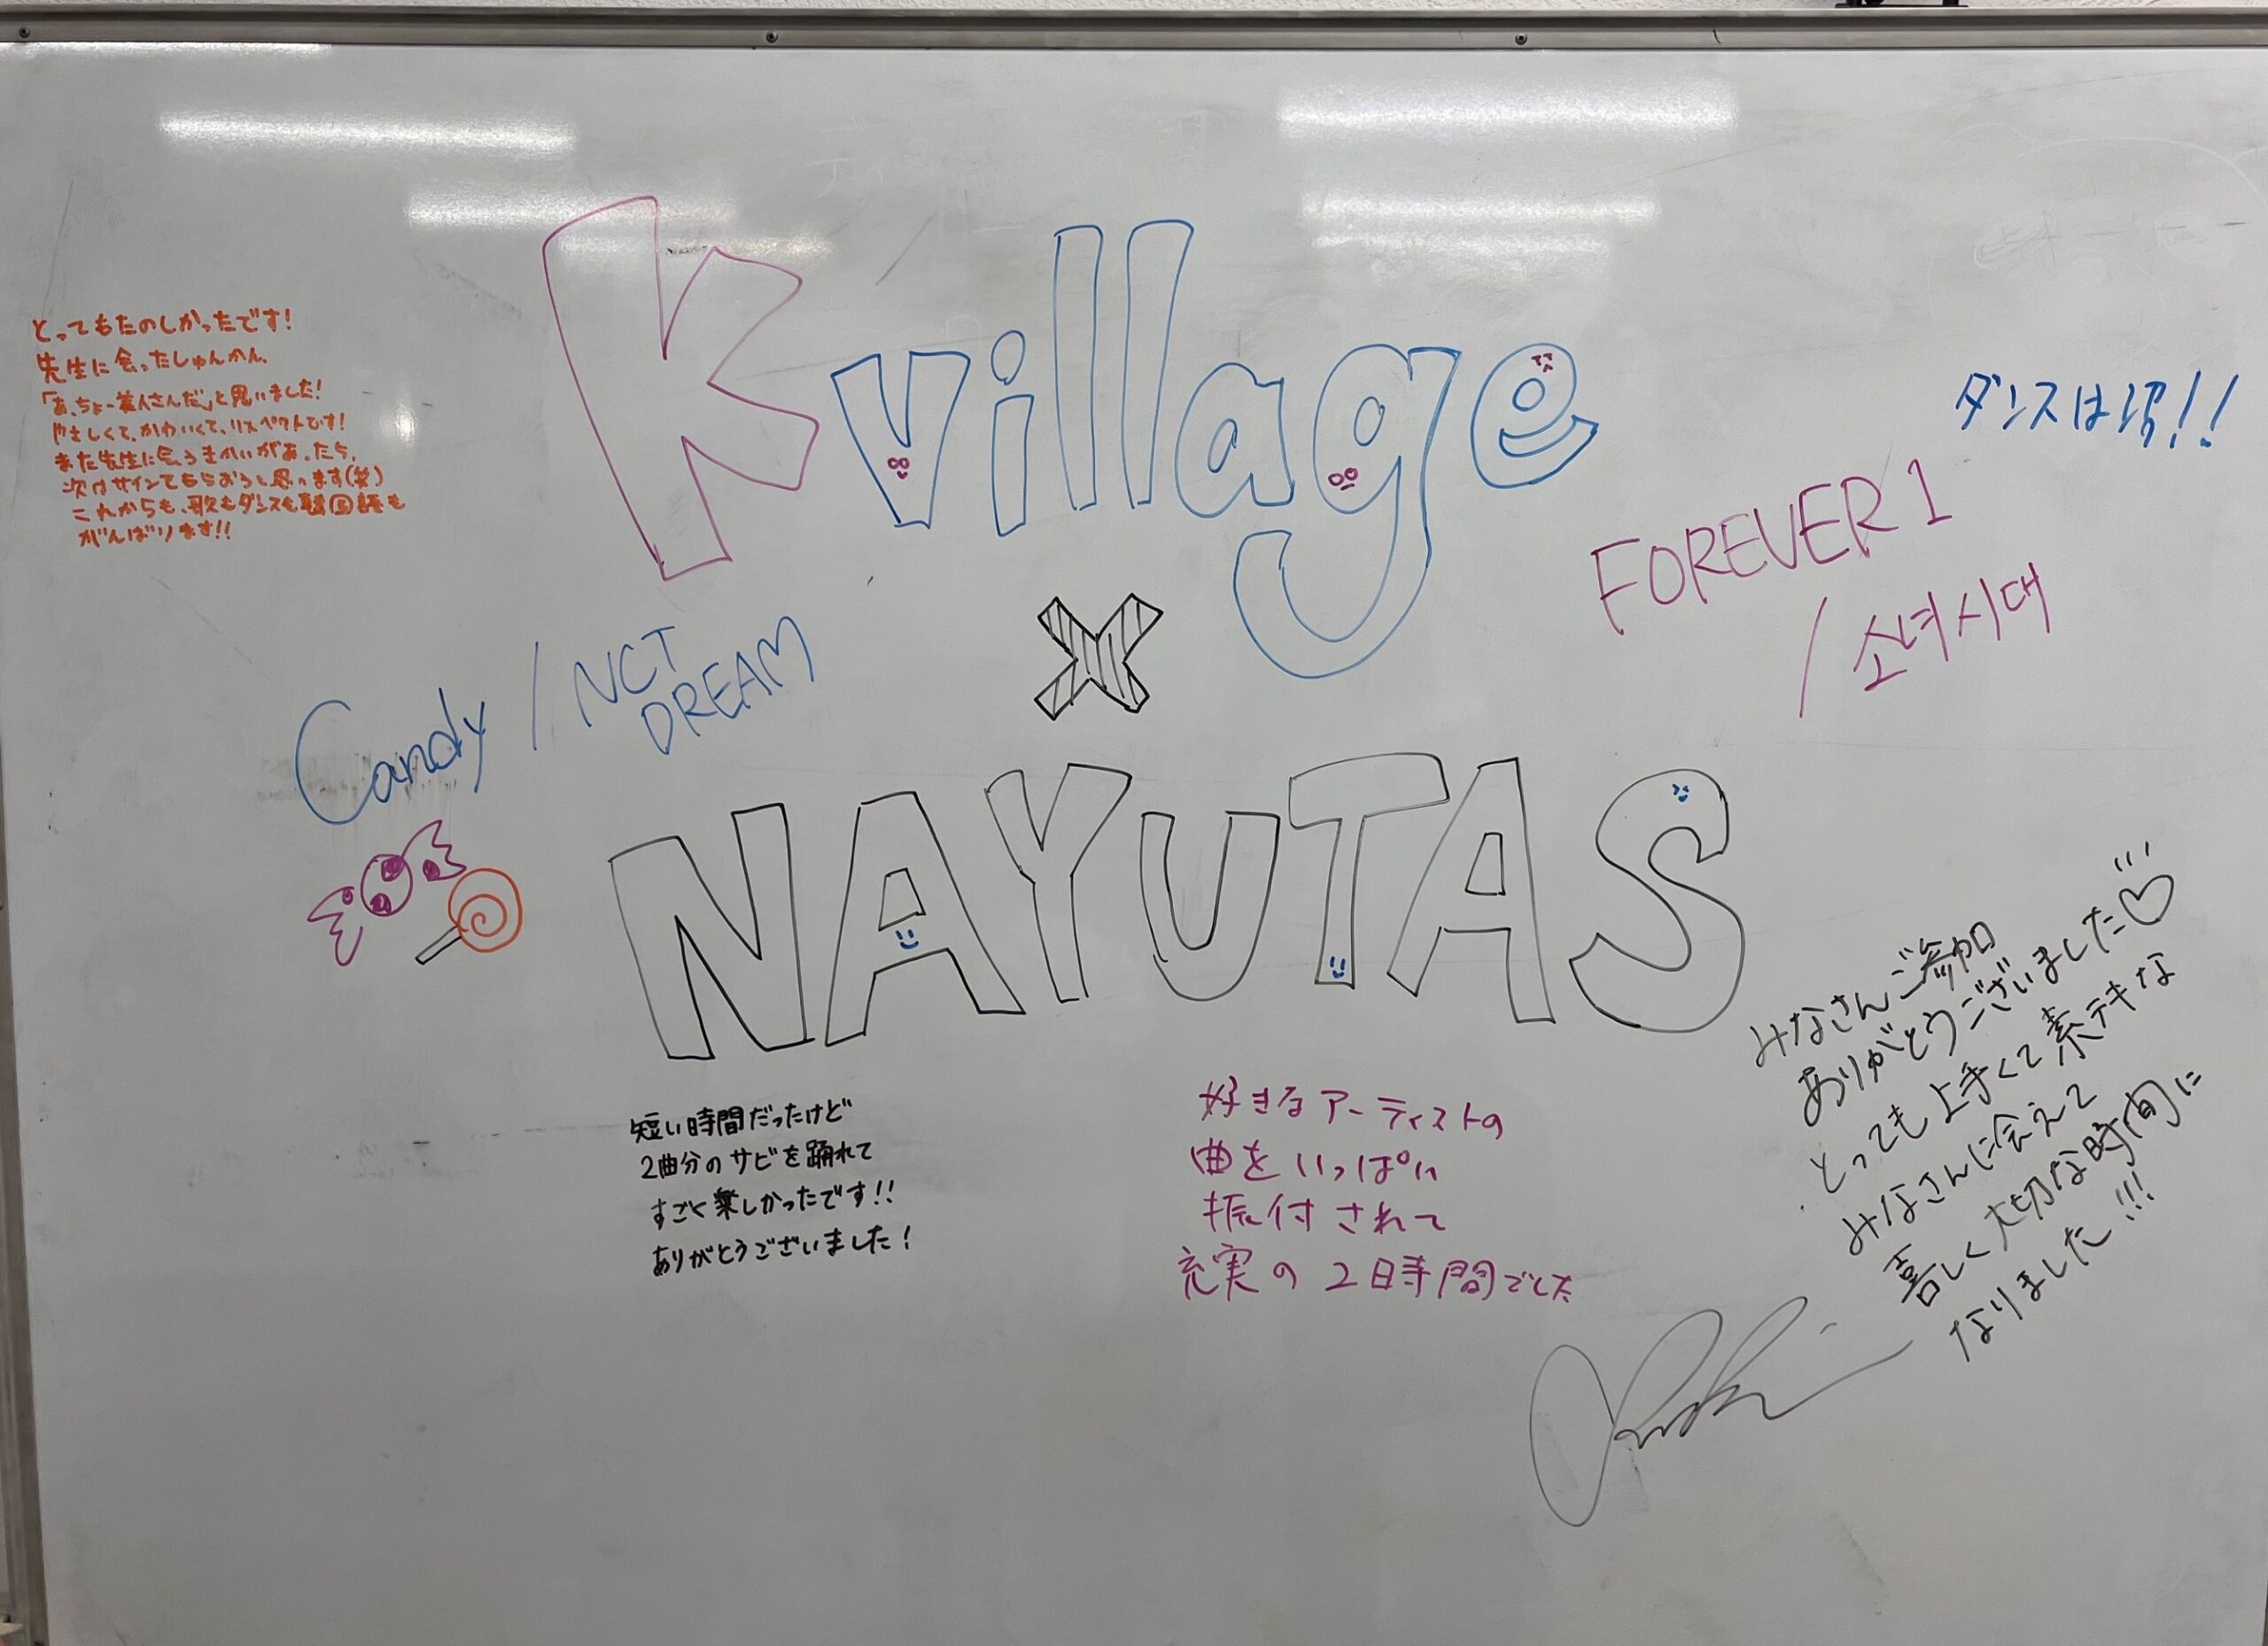 Kvillage
×
NAYUTAS
とってもたのしかったです!
先生に会ったしゅんかん、
「あ、ちょー美人さんだ」と思いました!
やさしくて、かわいくて、リスペクトです!
また先生に会うきかいがあったら、
次はサインてもらおうと思います(笑)
これからも、歌もダンスも韓国語も
がんばります!!
ダンスは沼!!
FOREVER 1
/ 소녀시대
Candy / NCT
DREAM
短い時間だったけど
2曲分のサビを踊れて
すごく楽しかったです!!
ありがとうございました!
好きなアーティストの
曲をいっぱい
振付されて
充実の2日時間でした
みなさんご参加
ありがとうございました♡
とっても上手くて素テキな
みなさんに会えて
喜しく大切な時間に
なりました!!!